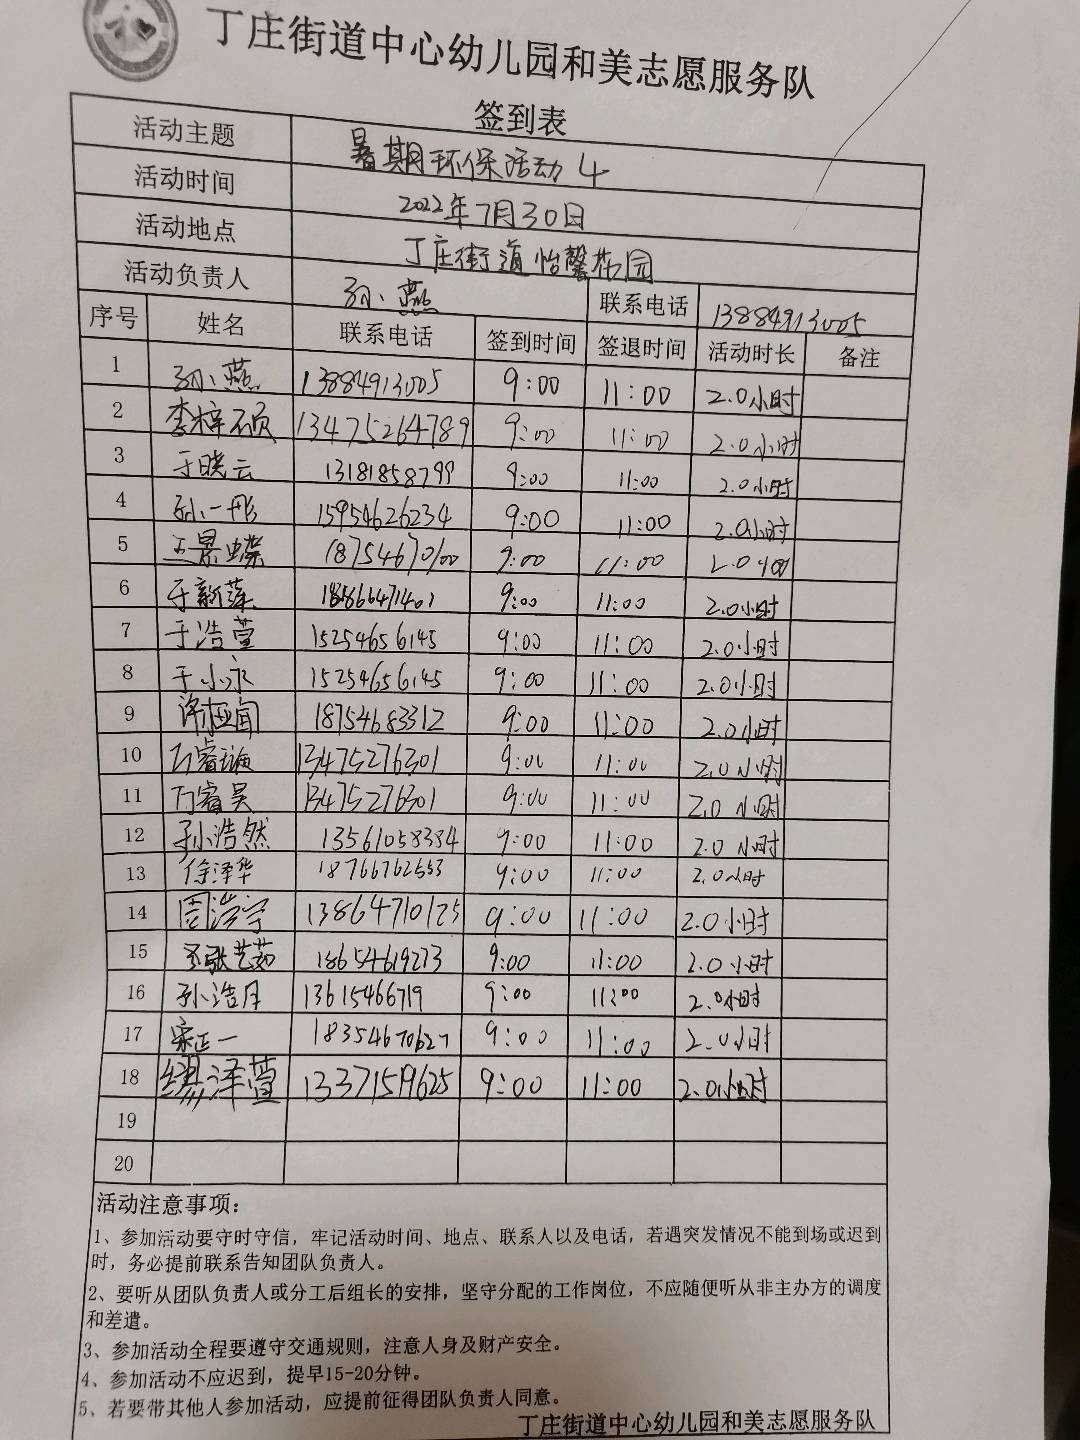 丁庄街道中心幼儿园和美志愿服务队
签到表
活动主题 暑期环保活动4
活动时间 2022年7月30日
活动地点 丁庄街道怡馨花园
活动负责人 孙小燕 联系电话 13884913005
序号 姓名 联系电话 签到时间 签退时间 活动时长 备注
1 孙小燕 13884913005 9:00 11:00 2.0小时
2 李梓硕 13475264789 9:00 11:00 2.0小时
3 于晓云 13181858799 9:00 11:00 2.0小时
4 孙一彤 15954626234 9:00 11:00 2.0小时
5 王景蝶 18754670100 9:00 11:00 2.0小时
6 于新蕖 18566471401 9:00 11:00 2.0小时
7 于浩萱 15254656145 9:00 11:00 2.0小时
8 于小永 15254656145 9:00 11:00 2.0小时
9 18754683312 9:00 11:00 2.0小时
10 13475276301 9:00 11:00 2.0小时
11 万睿昊 13475276301 9:00 11:00 2.0小时
12 孙浩然 13561058384 9:00 11:00 2.0小时
13 徐泽华 18766762553 9:00 11:00 2.0小时
14 周浩宇 13864710125 9:00 11:00 2.0小时
15 张艺茹 18654619273 9:00 11:00 2.0小时
16 孙浩月 13615466719 9:00 11:00 2.0小时
17 宋正一 18354670627 9:00 11:00 2.0小时
18 缪泽萱 13371519625 9:00 11:00 2.0小时
19
20
活动注意事项：
1、参加活动要守时守信，牢记活动时间、地点、联系人以及电话，若遇突发情况不能到场或迟到
时，务必提前联系告知团队负责人。
2、要听从团队负责人或分工后组长的安排，坚守分配的工作岗位，不应随便听从非主办方的调度
和差遣。
3、参加活动全程要遵守交通规则，注意人身及财产安全。
4、参加活动不应迟到，提早15-20分钟。
5、若要带其他人参加活动，应提前征得团队负责人同意。
丁庄街道中心幼儿园和美志愿服务队